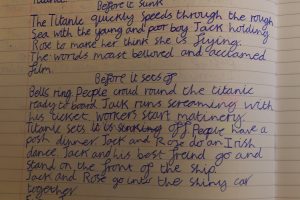 Before it sunk
The Titanic quickly speeds through the rough
Sea with the young and poor boy Jack holding
Rose to make her think she is flying.
The worlds moast beloved and acclamed
film.
Before it sets off
Bells ring People croud round the titanic
ready to board Jack runs screaming with
his ticket workers start matinery.
Titanic sets off People have a
posh dynner Jack and Rose do an Irish
dance Jack and his best freind go and
stand on the front of the ship
Jack and Rose go into the shiny car
together